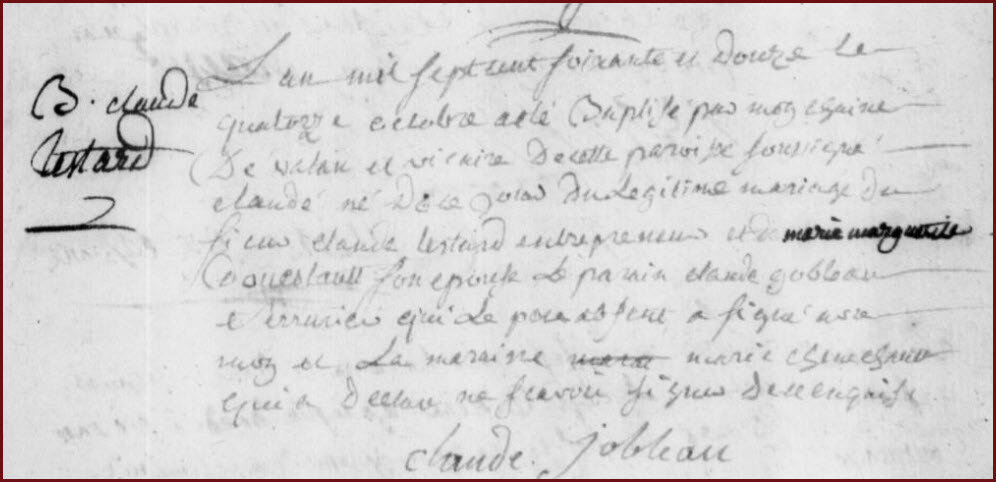 B. claude
testard
L'an mil sept cent soixante et Douze Le
quatorze octobre a eté Baptisé par moy
De vatan et vicaire De cette paroisse soussigné
claude né De ce jour Du Legitime mariage Du
sieur claude testard entrepreneur et de marie marguerite
son epouse Le parain claude gobleau
serrurier qui Le pere absent a signé avec
moy et La maraine marie
qui a Declaré ne scavoir signer De ce enquise
claude. jobleau